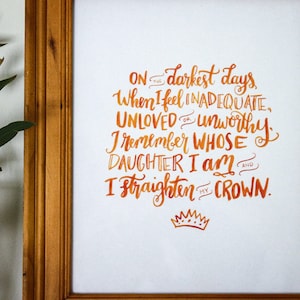 ON THE darkest days,
When I feel INADEQUATE,
UNLOVED OR unworthy.
I remember WHOSE
DAUGHTER I am AND
I straighten MY CROWN.